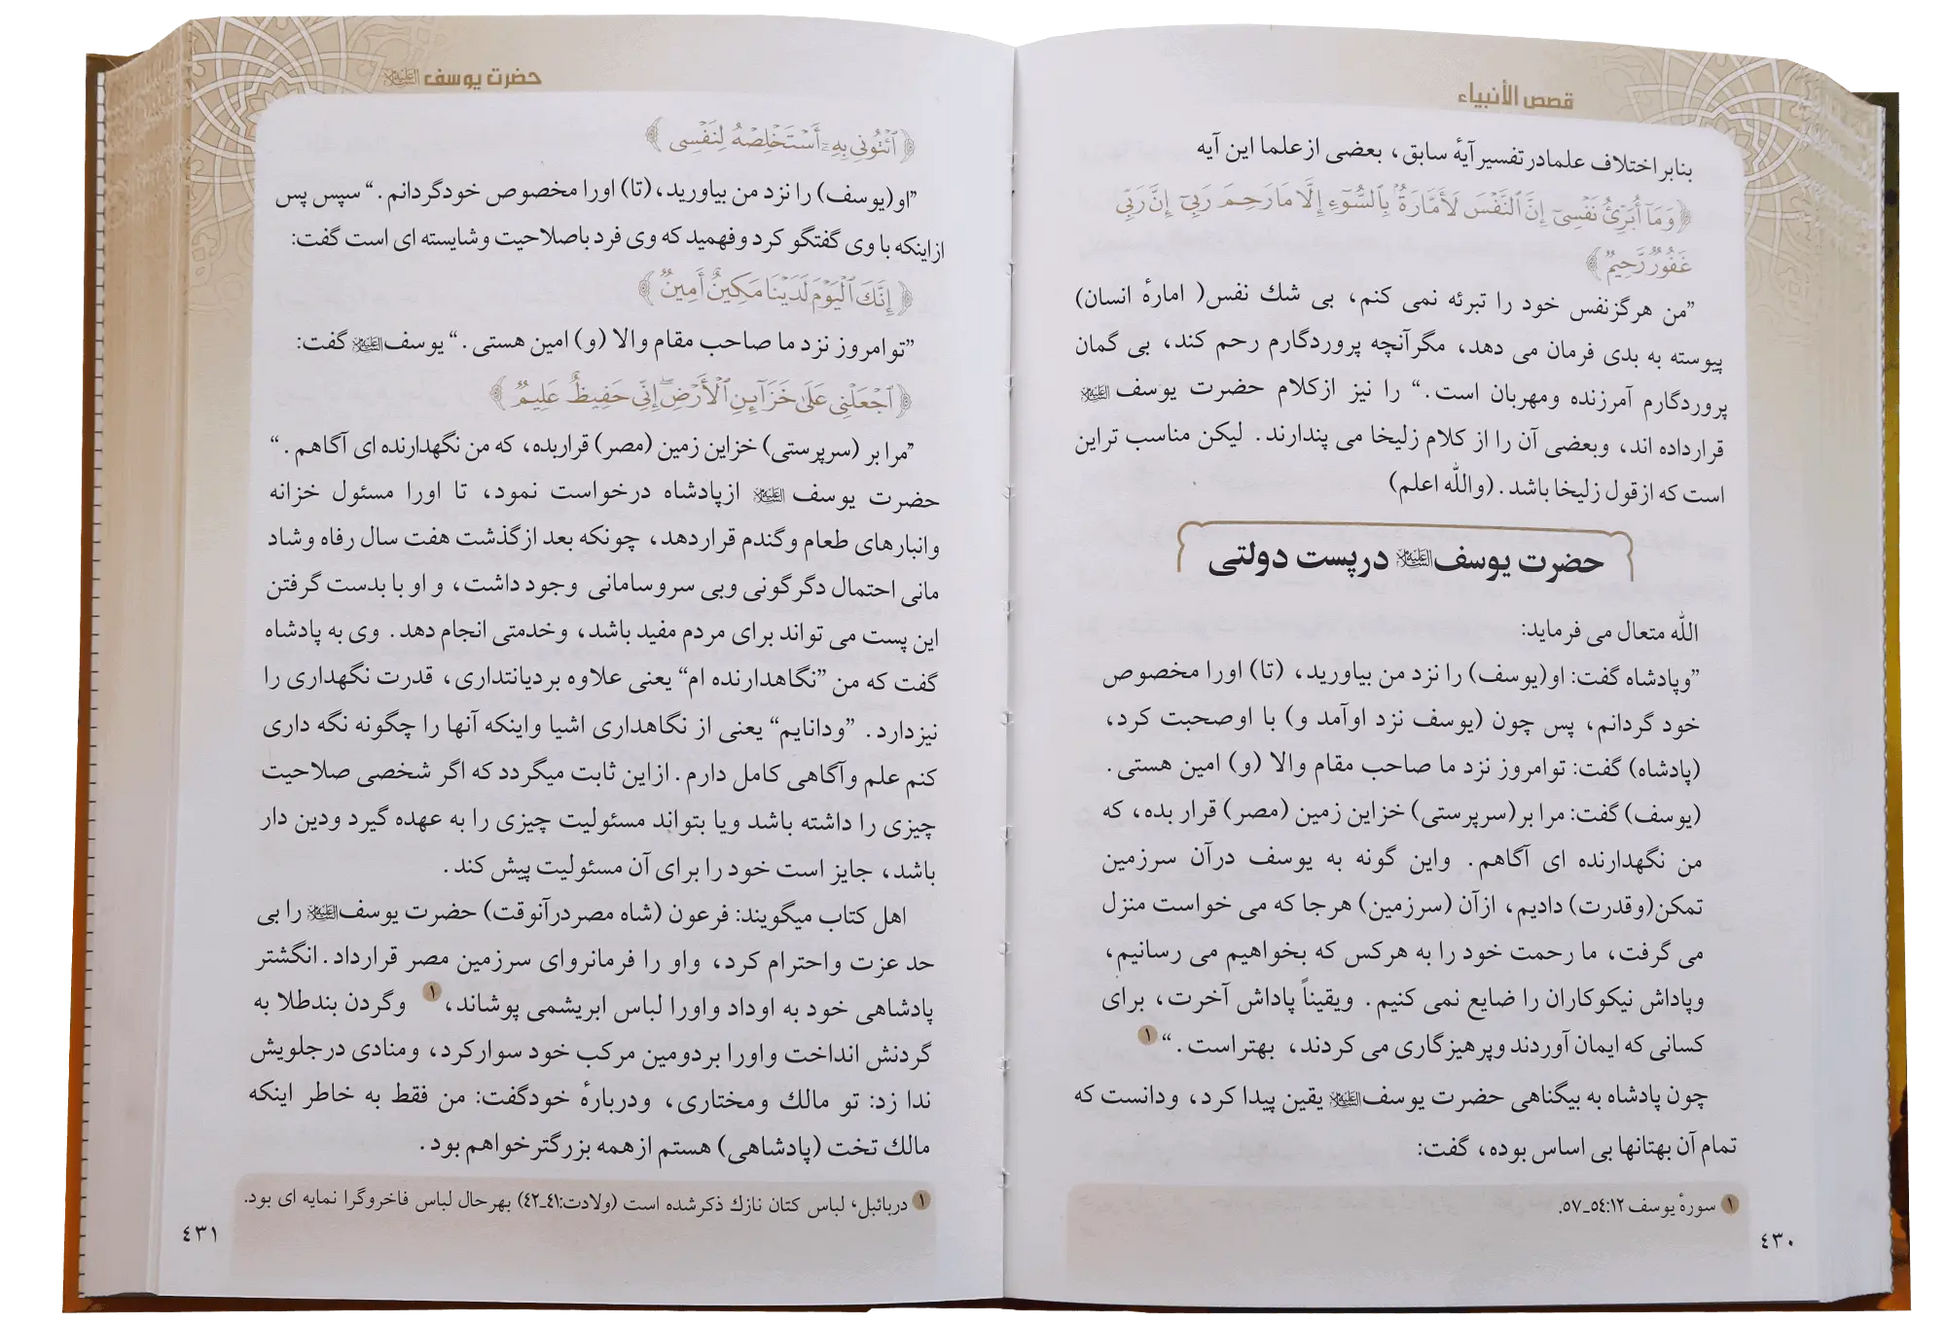 قصص الأنبیاء
بنابر اختلاف علما در تفسیر آیۀ سابق، بعضی از علما این آیه
﴿وَمَآ أُبَرِّئُ نَفْسِیٓ إِنَّ ٱلنَّفْسَ لَأَمَّارَةُۢ بِٱلسُّوٓءِ إِلَّا مَا رَحِمَ رَبِّیٓ إِنَّ رَبِّی
غَفُورٌ رَّحِیمٌ﴾
”من هرگز نفس خود را تبرئه نمی کنم، بی شك نفس( امارۀ انسان)
پیوسته به بدی فرمان می دهد، مگر آنچه پروردگارم رحم کند، بی گمان
پروردگارم آمرزنده ومهربان است.“ را نیز از کلام حضرت یوسف علیه‌السلام
قرار داده اند، وبعضی آن را از کلام زلیخا می پندارند. لیکن مناسب تر این
است که از قول زلیخا باشد. (والله اعلم)
حضرت یوسف علیه‌السلام در پست دولتی
الله متعال می فرماید:
”وپادشاه گفت: او(یوسف) را نزد من بیاورید، (تا) اورا مخصوص
خود گردانم، پس چون (یوسف نزد اوآمد و) با اوصحبت کرد،
(پادشاه) گفت: توامروز نزد ما صاحب مقام والا (و) امین هستی.
(یوسف) گفت: مرا بر(سرپرستی) خزاین زمین (مصر) قرار بده، که
من نگهدارنده ای آگاهم. واین گونه به یوسف درآن سرزمین
تمکن(وقدرت) دادیم، ازآن (سرزمین) هرجا که می خواست منزل
می گرفت، ما رحمت خود را به هرکس که بخواهیم می رسانیم،
وپاداش نیکوکاران را ضایع نمی کنیم. ویقیناً پاداش آخرت، برای
کسانی که ایمان آوردند وپرهیزگاری می کردند، بهتر است.“ ١
چون پادشاه به بیگناهی حضرت یوسف علیه‌السلام یقین پیدا کرد، ودانست که
تمام آن بهتانها بی اساس بوده، گفت:
١ سورۀ یوسف ١٢:٥٤_٥٧.
٤٣٠
حضرت یوسف علیه‌السلام
﴿ٱئْتُونِی بِهِۦٓ أَسْتَخْلِصْهُ لِنَفْسِی﴾
”او(یوسف) را نزد من بیاورید، (تا) اورا مخصوص خودگردانم.“ سپس پس
ازاینکه با وی گفتگو کرد وفهمید که وی فرد باصلاحیت وشایسته ای است گفت:
﴿إِنَّكَ ٱلْیَوْمَ لَدَیْنَا مَكِینٌ أَمِینٌ﴾
”توامروز نزد ما صاحب مقام والا (و) امین هستی.“ یوسف علیه‌السلام گفت:
﴿ٱجْعَلْنِی عَلَىٰ خَزَآئِنِ ٱلْأَرْضِ إِنِّی حَفِیظٌ عَلِیمٌ﴾
”مرا بر (سرپرستی) خزاین زمین (مصر) قراربده، که من نگهدارنده ای آگاهم.“
حضرت یوسف علیه‌السلام ازپادشاه درخواست نمود، تا اورا مسئول خزانه
وانبارهای طعام وگندم قراردهد، چونکه بعد ازگذشت هفت سال رفاه وشاد
مانی احتمال دگرگونی وبی سروسامانی وجود داشت، و او با بدست گرفتن
این پست می تواند برای مردم مفید باشد، وخدمتی انجام دهد. وی به پادشاه
گفت که من ”نگاهدارنده ام“ یعنی علاوه بردیانتداری، قدرت نگهداری را
نیزدارد. ”ودانایم“ یعنی از نگاهداری اشیا واینکه آنها را چگونه نگه داری
کنم علم وآگاهی کامل دارم. ازاین ثابت میگردد که اگر شخصی صلاحیت
چیزی را داشته باشد ویا بتواند مسئولیت چیزی را به عهده گیرد ودین دار
باشد، جایز است خود را برای آن مسئولیت پیش کند.
اهل کتاب میگویند: فرعون (شاه مصردرآنوقت) حضرت یوسف علیه‌السلام را بی
حد عزت واحترام کرد، واو را فرمانروای سرزمین مصر قرارداد. انگشتر
پادشاهی خود به اوداد واورا لباس ابریشمی پوشاند، ١ وگردن بندطلا به
گردنش انداخت واورا بردومین مرکب خود سوارکرد، ومنادی درجلویش
ندا زد: تو مالك ومختاری، ودربارۀ خودگفت: من فقط به خاطر اینکه
مالك تخت (پادشاهی) هستم ازهمه بزرگترخواهم بود.
١ دربائبل، لباس کتان نازك ذکرشده است (ولادت:٤١_٤٢) بهرحال لباس فاخروگرا نمایه ای بود.
٤٣١